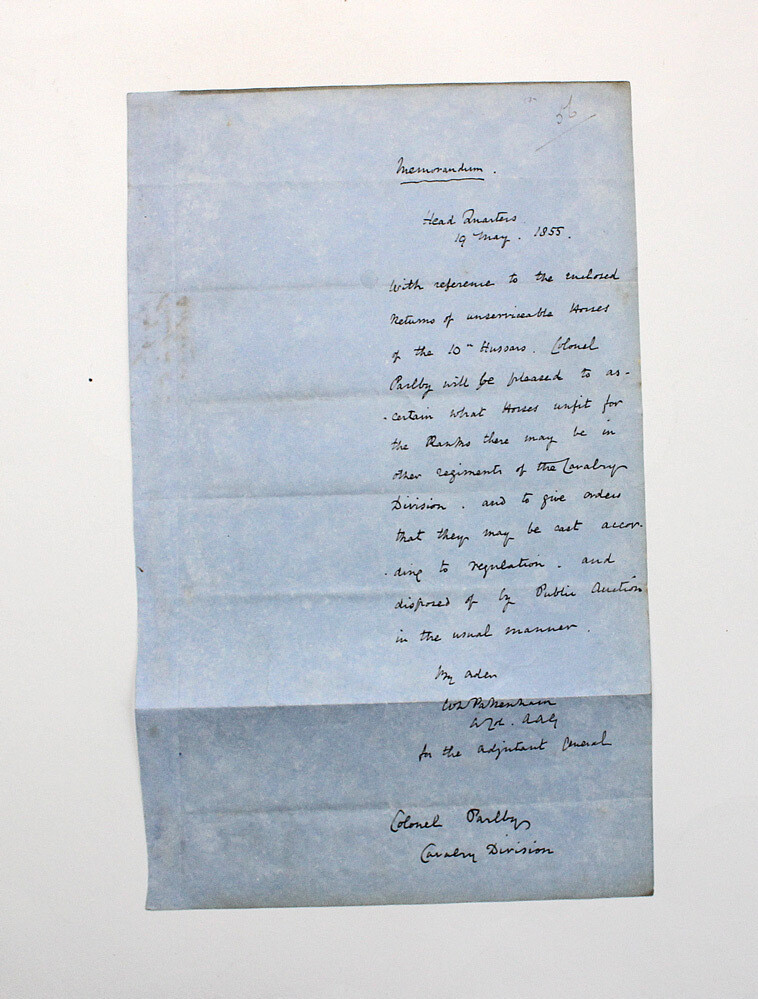 56
Memorandum.
Head Quarters
19 May. 1855.
With reference to the enclosed
Returns of unserviceable Horses
of the 10th Hussars. Colonel
Parlby will be pleased to as-
-certain what Horses unfit for
the Ranks there may be in
other regiments of the Cavalry
Division. and to give orders
that they may be cast accor-
-ding to regulation. and
disposed of by Public Auction
in the usual manner.
By order
Pakenham
AAG
for the Adjutant General
Colonel Parlby
Cavalry Division